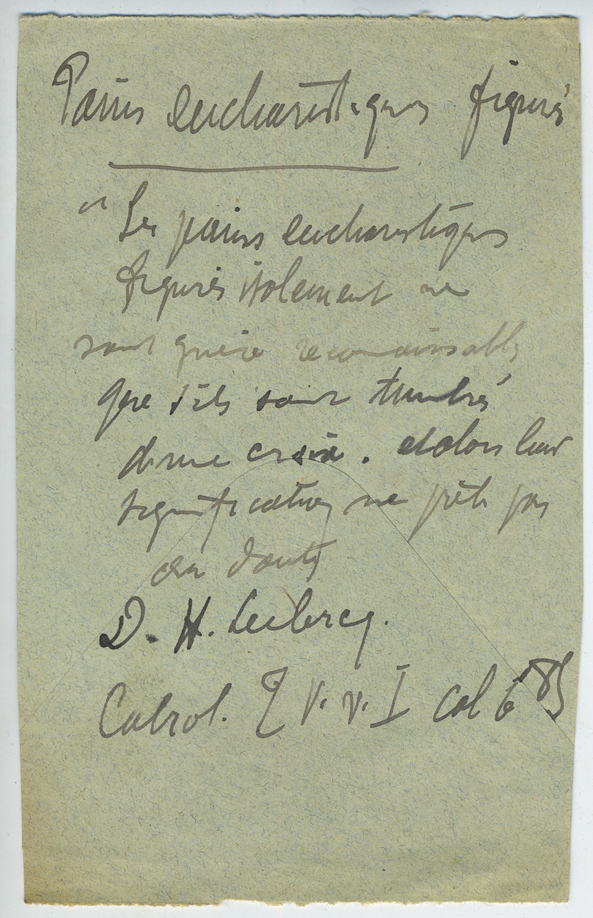 Pains eucharistiques figurés
" Les pains eucharistiques
figurés isolement ne
sont guère reconnaissables
que s'ils sont timbrés
d'une croix. et alors leur
signification ne prête pas
au doute
D. H. Leclercq.
Cabrol. T V. v. I col 685